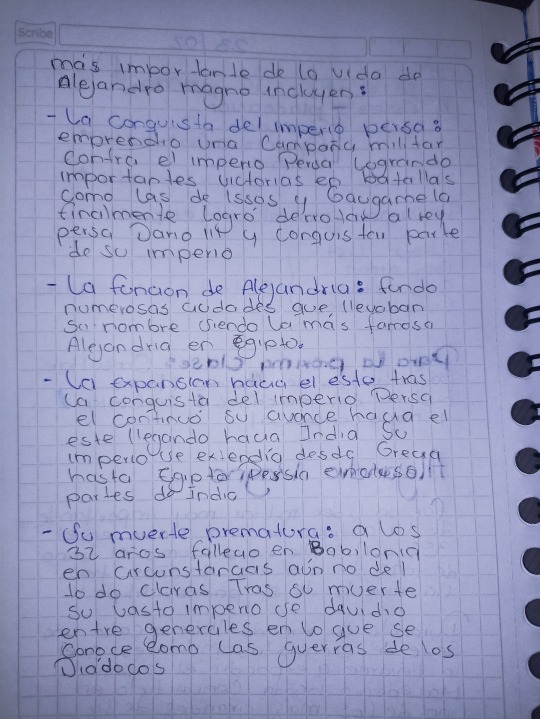 Scribe
más importante de la vida de
Alejandro magno incluyen:
- La conquista del imperio persa:
emprendio una campaña militar
contra el imperio Persa Logrando
importantes victorias en batallas
como las de Issos y Gaugamela
finalmente Logró derrotar al rey
persa Dario III y conquistar parte
de su imperio
- La funcion de Alejandria: fundo
numerosas ciudades que llevaban
su nombre siendo la más famosa
Alejandria en Egipto.
- La expansion hacia el este tras
la conquista del imperio Persa
el continuó su avance hacia el
este llegando hacia India su
imperio se extendia desde Grecia
hasta Egipto Persia e incluso
partes de India
- Su muerte prematura: a los
32 años fallecio en Babilonia
en circunstancias aún no del
todo claras Tras su muerte
su vasto imperio se davidio
entre generales en lo que se
conoce como las guerras de los
Diádocos